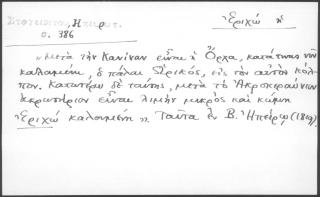 Ἐριχώ ἡ
Ἠπειρ.
σ. 386
„ Μετὰ τὴν Κανίναν εἶναι ἡ Ὄρχα, κατά τινας νῦν
καλουμένη, ὁ πάλαι Ὠρικός, εἰς τὸν αὐτὸν κόλ-
πον. Κατωτέρω δὲ ταύτης, μετὰ τὸ Ἀκροκεραύνιον
ἀκρωτήριον εἶναι λιμὴν μικρὸς καὶ κώμη
Ἐριχώ καλουμένη ". Ταῦτα ἐν Β. Ἠπείρῳ